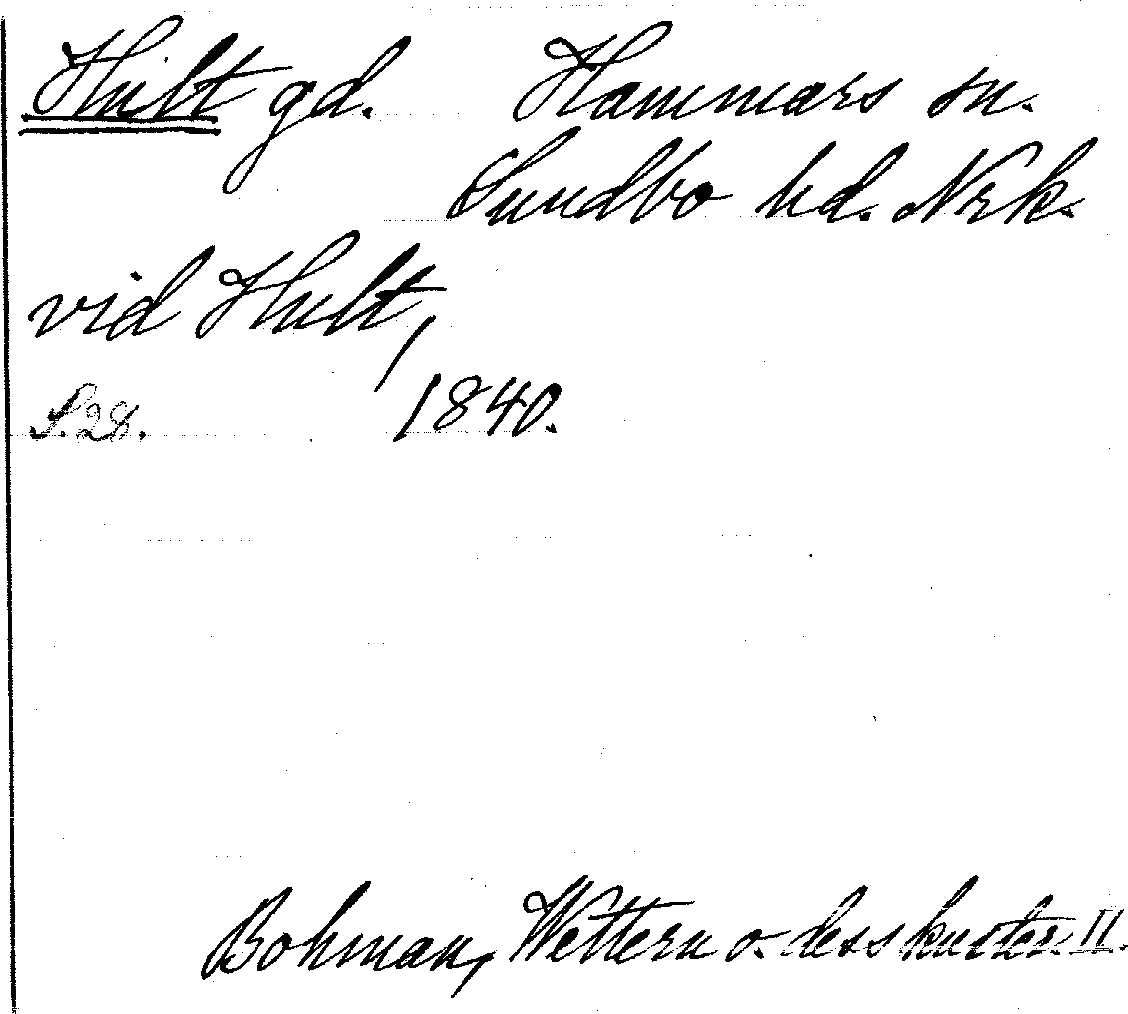 Hult gd. Hammars sn.
Sundbo hd. Nrk.
vid Hult,
S. 28. 1840.
Bohman, Wettern o. dess kuster II.